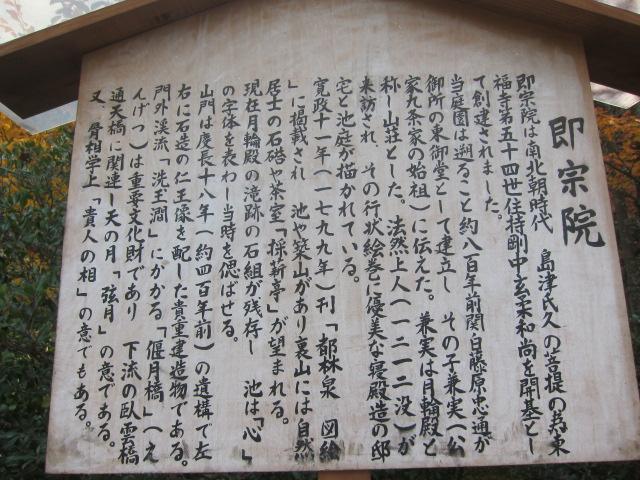 即宗院
即宗院は南北朝時代 島津氏久の菩提の為東
福寺第五十四世住持剛中玄柔和尚を開基とし
て創建されました。
当庭園は遡ること約八百年前関白藤原忠通が
御所の東御堂として建立し その子兼実(公
家九条家の始祖)に伝えた。兼実は月輪殿と
称し山荘とした。法然上人(一二一二没)が
来訪され、その行状絵巻に優美な寝殿造の邸
宅と池庭が描かれている。
寛政十一年(一七九九年)刊「都林泉 図絵
」に掲載され 池や築山があり裏山には自然
居士の石碆や茶室「採薪亭」が望まれる。
現在月輪殿の滝跡の石組が残存し 池は「心」
の字体を表わし当時を偲ばせる。
山門は慶長十八年(約四百年前)の遺構で左
右に石造の仁王像を配した貴重建造物である。
門外渓流「洗玉澗」にかかる「偃月橋」(え
んげつ)は重要文化財であり 下流の臥雲橋
通天橋に関連し天の月「弦月」の意である。
又 骨相学上「貴人の相」の意でもある。